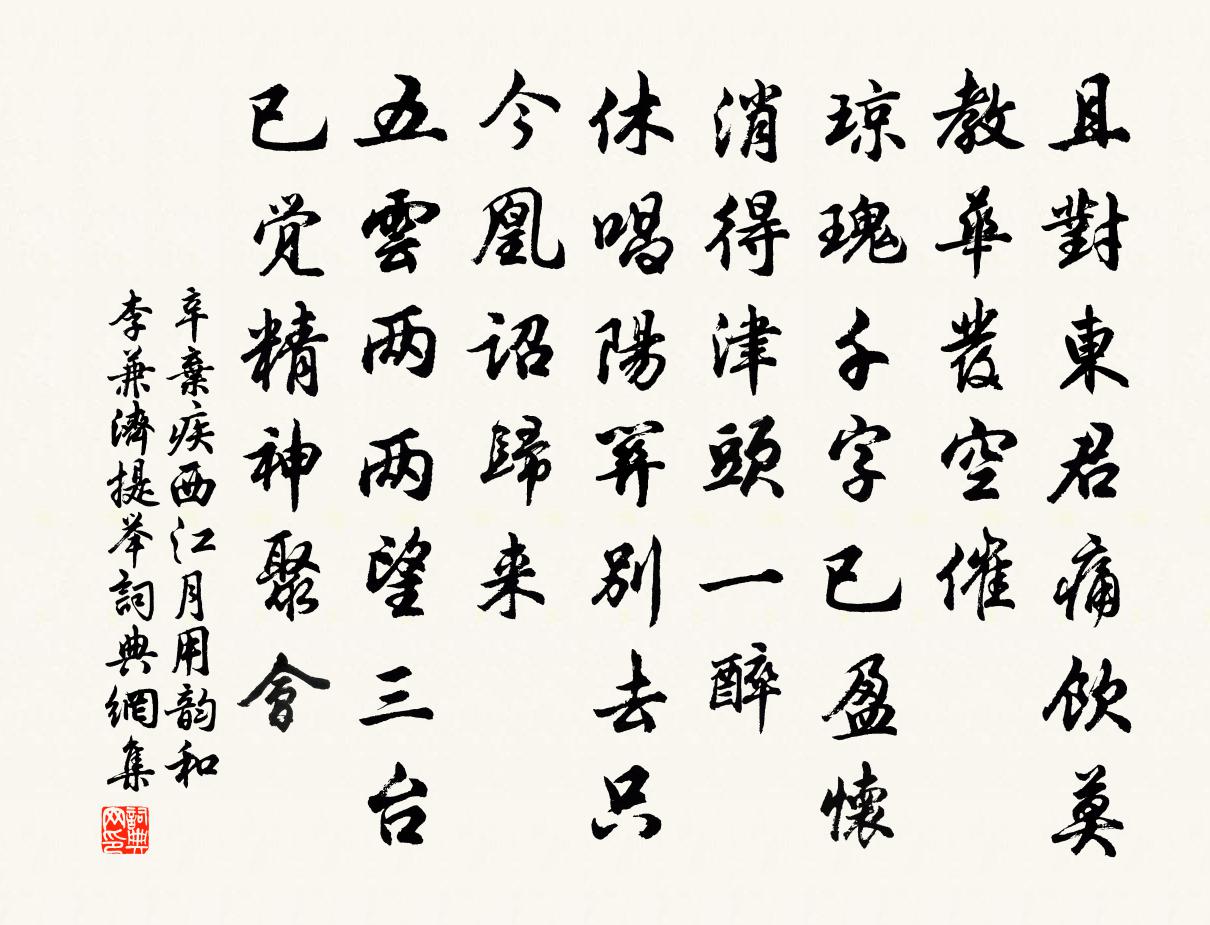 且對東君痛飲莫
教華髮空催
琼瑰千字已盈懷
消得津頭一醉
休唱陽關別去只
今凰詔歸来
五雲两两望三台
已觉精神聚會
辛棄疾西江月用韵和
李兼濟提举詞典網集
詞典网印